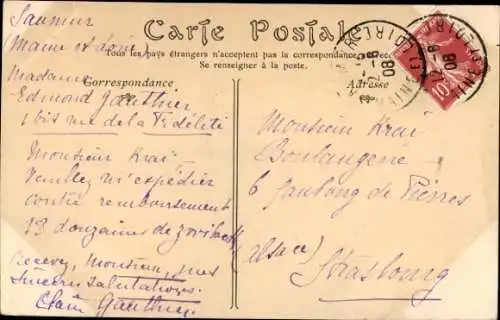 Carte Postale
Tous les pays étrangers n'acceptent pas la correspondance
Se renseigner à la poste.
Correspondance
Adresse
Saumur
(Maine et Loire)
Madame
Edmond Gauthier
1 bis rue de la Fidélité
Monsieur Krai
Veuillez m'expédier
contre remboursement
18 douzaines de
Recevez, Monsieur, mes
sincères salutations.
Gauthier
Monsieur Krai
Boulangerie
6 Faubourg de Pierres
(Alsace)
Strasbourg
10
08
08